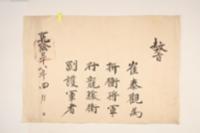 敎旨
崔泰觀爲
折衝將軍
行龍驤衛
副護軍者
乾隆
年四月日